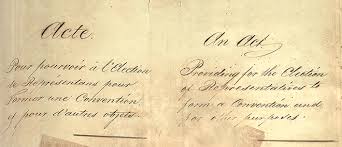 Acte.
Pour pourvoir à l'Election
de Représentans pour
former une Convention
& pour d'autres objets.
An Act
Providing for the Election
of Representatives to
form a Convention and
for other purposes.